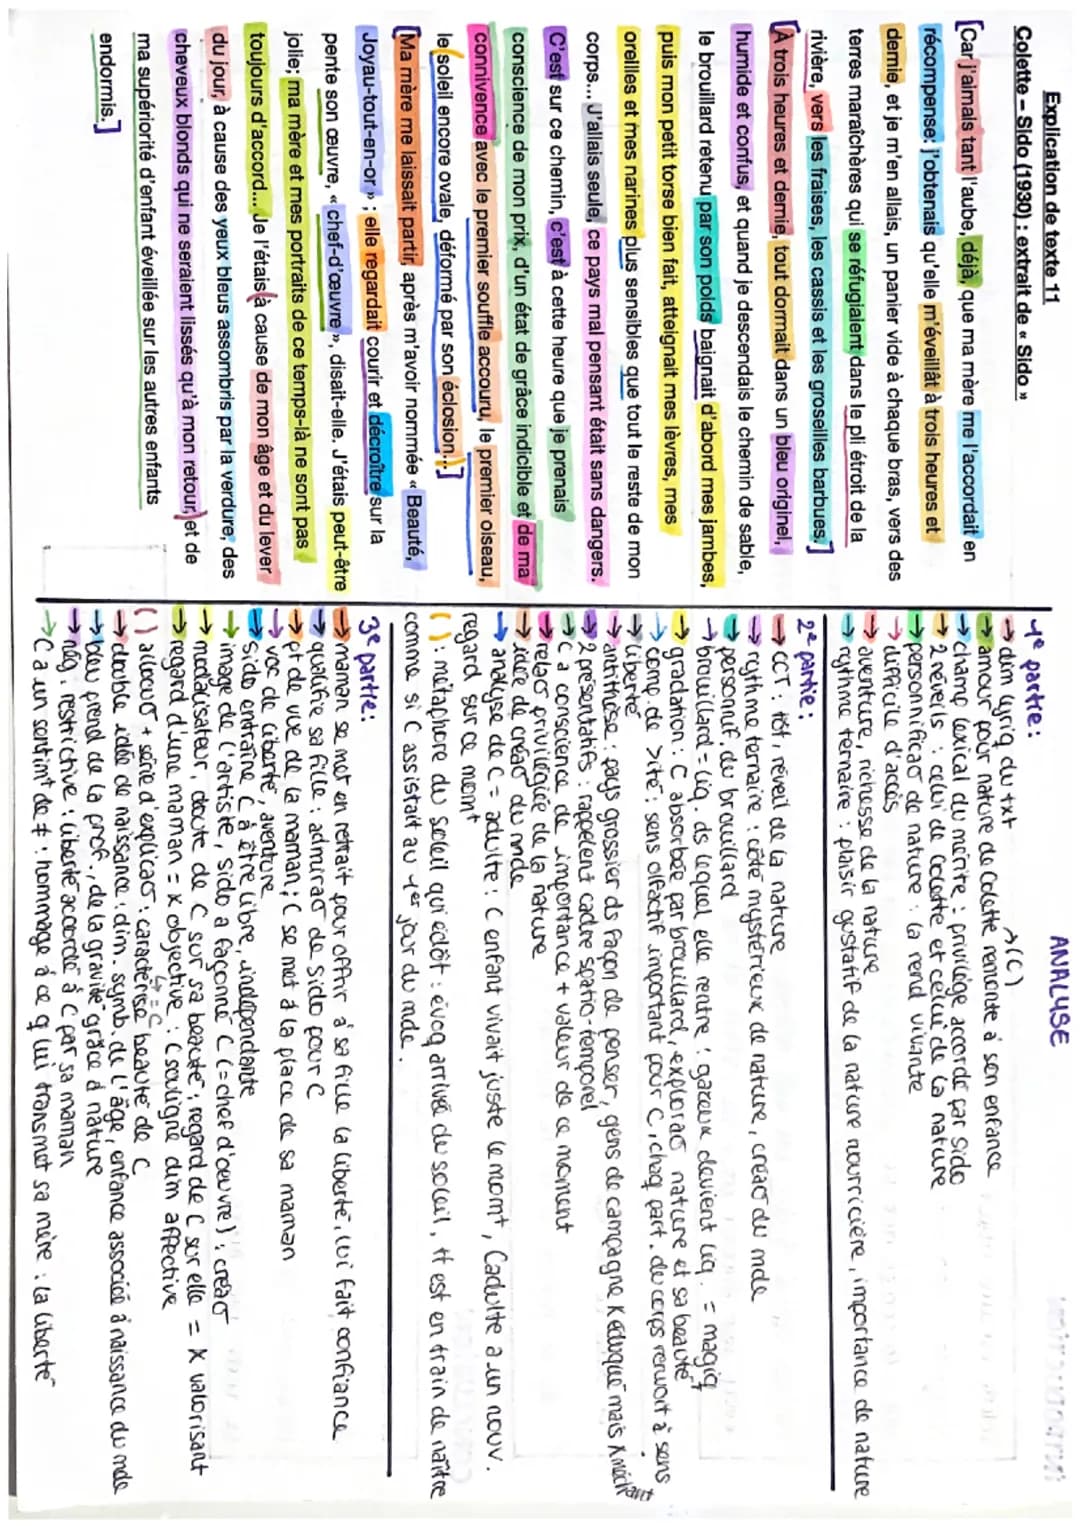 Explication de texte 11
Colette – Sido (1930) : extrait de « Sido »
[Car j'aimais tant l'aube, déjà, que ma mère me l'accordait en
récompense; j'obtenais qu'elle m'éveillât à trois heures et
demie, et je m'en allais, un panier vide à chaque bras, vers des
terres maraîchères qui se réfugiaient dans le pli étroit de la
rivière, vers les fraises, les cassis et les groseilles barbues.]
[À trois heures et demie, tout dormait dans un bleu originel,
humide et confus, et quand je descendais le chemin de sable,
le brouillard retenu par son poids baignait d'abord mes jambes,
puis mon petit torse bien fait, atteignait mes lèvres, mes
oreilles et mes narines plus sensibles que tout le reste de mon
corps... J'allais seule, ce pays mal pensant était sans dangers.
C'est sur ce chemin, c'est à cette heure que je prenais
conscience de mon prix, d'un état de grâce indicible et de ma
connivence avec le premier souffle accouru, le premier oiseau,
le (soleil encore ovale, déformé par son éclosion...)]
[Ma mère me laissait partir, après m'avoir nommée « Beauté,
Joyau-tout-en-or » ; elle regardait courir et décroître sur la
pente son œuvre, « chef-d'œuvre », disait-elle. J'étais peut-être
jolie; ma mère et mes portraits de ce temps-là ne sont pas
toujours d'accord... Je l'étais (à cause de mon âge et du lever
du jour, à cause des yeux bleus assombris par la verdure, des
cheveux blonds qui ne seraient lissés qu'à mon retour,) et de
ma supériorité d'enfant éveillée sur les autres enfants
endormis.]
ANALYSE
1e partie :
→ dim lyriq du txt → (C)
→ amour pour nature de Colette remonte à son enfance
→ champ lexical du mérite : privilège accordé par Sido
→ 2 réveils : celui de Colette et celui de la nature
→ personnificao de nature : la rend vivante
→ difficile d'accès
→ aventure, richesse de la nature
→ rythme ternaire : plaisir gustatif de la nature nourricière, importance de nature
2e partie :
→ CCT : tôt, réveil de la nature
→ rythme ternaire : côté mystérieux de nature, créao du mde
→ personnif. du brouillard
→ brouillard = liq. ds lequel elle rentre : gazeux devient liq. = magiq
→ gradation : C absorbée par brouillard, explorao nature et sa beauté
→ comp. de >ité : sens olfactif important pour C, chaq part. du corps renvoit à sens
→ liberté
→ antithèse : pays grossier ds façon de penser, gens de campagne X éduqué mais X méchant
→ 2 présentatifs : rappelent cadre spatio-temporel
→ C a conscience de importance + valeur de ce moment
→ relao privilégiée de la nature
→ idée de créao du mde
→ analyse de C = adulte : C enfant vivait juste le momt, Cadulte a un nouv.
regard sur ce momt
( ) : métaphore du soleil qui éclôt : évoq arrivée du soleil, tt est en train de naître
comme si C assistait au 1er jour du mde.
3e partie :
→ maman se met en retrait pour offrir à sa fille la liberté, lui fait confiance
→ qualifie sa fille : admirao de Sido pour C
→ pt de vue de la maman ; C se met à la place de sa maman
→ voc de liberté, aventure
→ Sido entraîne C à être libre, indépendante
→ image de l'artiste, Sido a façonné C (= chef d'œuvre) : créao
→ modalisateur, doute de C sur sa beauté ; regard de C sur elle = X valorisant
→ regard d'une maman = X objective : C souligne dim affective
↳ = C
( ) albeur + série d'explicao : caractérise beauté de C
→ double idée de naissance : dim. symb. de l'âge, enfance associée à naissance du mde
→ bleu prend de la prof., de la gravité grâce à nature
→ nég. restrictive : liberté accordée à C par sa maman
→ C a un sentimt de ≠ : hommage à ce q lui transmet sa mère : la liberté